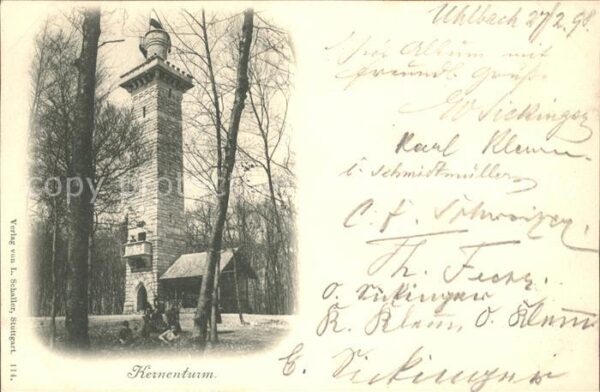 Uhlbach 27/2.98.
Für's Album mit
freundl. Gruß.
W. Sickinger
Karl Klemm
Schmidtmüller
C. F. Schweizer
Th.
O. Sickinger
K. Klemm, O. Klemm
E. Sickinger
Kernenturm.
Verlag von L. Schaller, Stuttgart. 114.
copyright